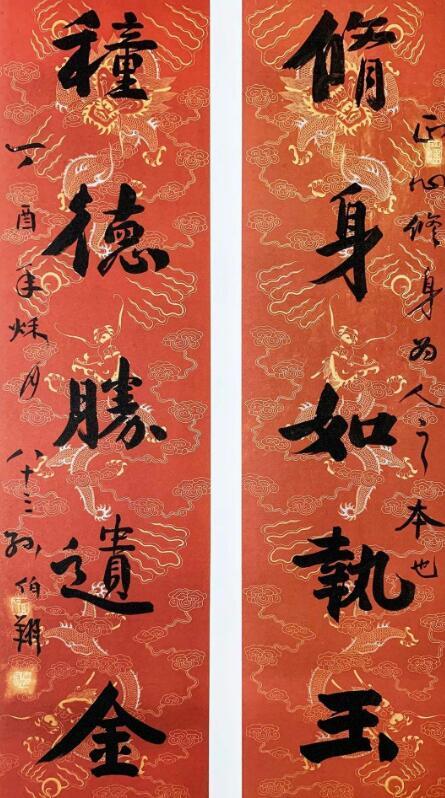 脩身如執玉
正心修身為人之本也
種德勝遺金
丁酉年秌月
八十三孙伯翔